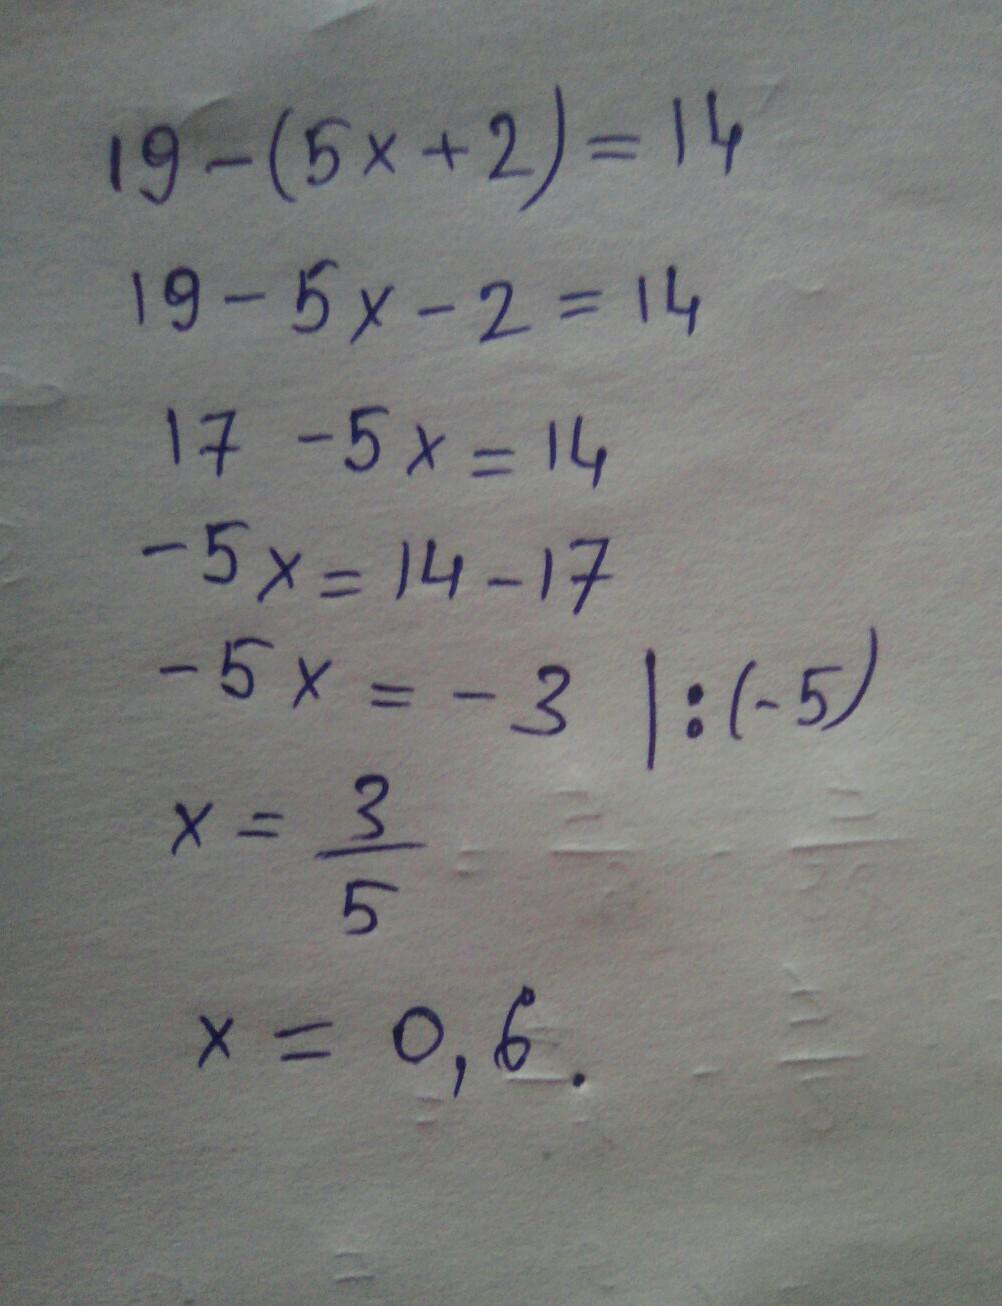 19 - (5x + 2) = 14
19 - 5x - 2 = 14
17 - 5x = 14
-5x = 14 - 17
-5x = -3 | : (-5)
x = 3/5
x = 0,6.